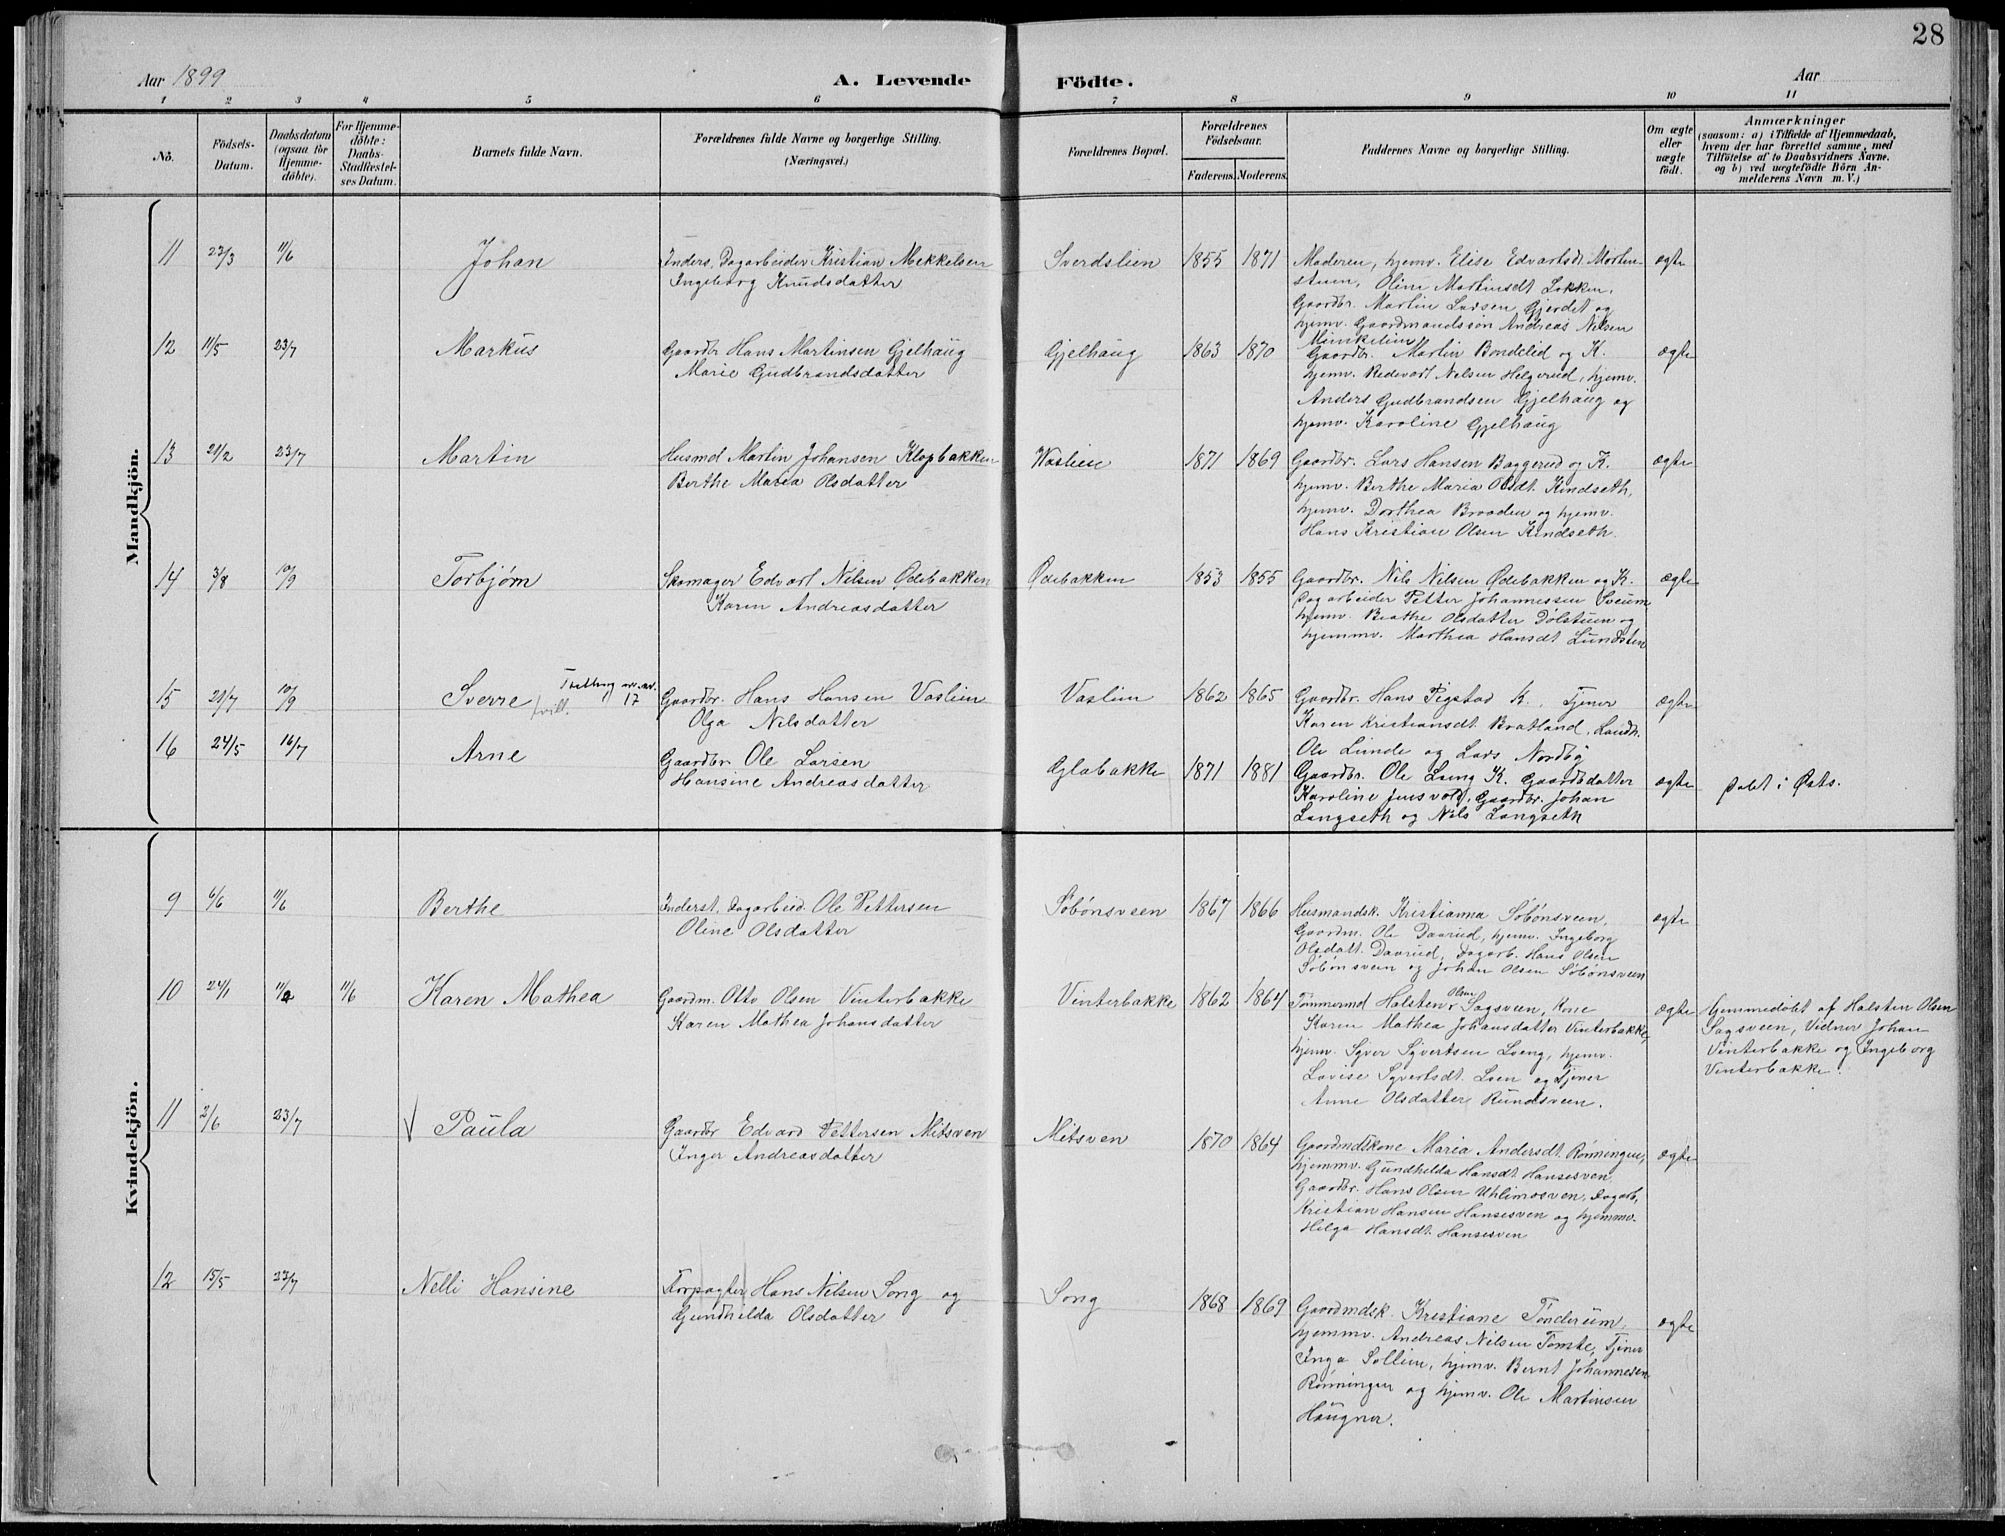 28
Aar 1899
A. Levende Födte.
Aar
1 2 3 4 5 6 7 8 9 10 11
Nö.
Födsels-Datum.
Daabsdatum (ogsaa for Hjemme-döbte).
For Hjemme-döbte: Daabs-Stadfæstel-ses Datum.
Barnets fulde Navn.
Forældrenes fulde Navne og borgerlige Stilling. (Næringsvei.)
Forældrenes Bopæl.
Forældrenes Födselsaar.
Faderens. Moderens.
Faddernes Navne og borgerlige Stilling.
Om ægte eller uægte födt.
Anmærkninger (saasom: a) i Tilfælde af Hjemmedaab, hvem der har forrettet samme, med Tilföielse af to Daabsvidners Navne, og b) ved uægtefödte Börn An-melderens Navn m. V.)
Mandkjön.
11 23/3 11/6 Johan
Inders. Dagarbeider Kristian Mekkelsen
Ingeborg Knudsdatter
Sverdslien 1855 1871
Moderen, hjemv. Elise Edvartsdt. Morten-
stuen, Oline Martinsdt Løkken,
Gaardbr. Martin Larsen Gjerdet og
hjemv. Gaardmandssøn Andreas Nilsen
Minikelien
ægte
12 11/5 23/7 Markus
Gaardbr Hans Martinsen Gjelhaug
Marie Gudbrandsdatter
Gjelhaug 1863 1870
Gaardbr. Martin Bondelid og K.
hjemv. Redevart Nilsen Helgerud, hjemv.
Anders Gudbrandsen Gjelhaug og
hjemv. Karoline Gjelhaug
ægte
13 21/2 23/7 Martin
Husmd Martin Johansen Klopbakken
Berthe Maria Olsdatter
Vaslien 1871 1869
Gaardbr. Lars Hansen Baggerud og K.
hjemv. Berthe Maria Olsdt. Kindseth,
hjemv. Dorthea Braaden og hjemv.
Hans Kristian Olsen Kindseth.
ægte
14 3/8 10/9 Torbjørn
Skomager Edvart Nilsen Ødebakken
Karen Andreasdatter
Ødebakken 1853 1855
Gaardbr. Nils Nilsen Ødebakken og K.
Dagarbeider Petter Johannessen Sveum,
hjemv. Beathe Olsdatter Dølstuen og
hjemmv. Marthea Hansdt. Lundsten
ægte
15 21/7 10/9 Sverre
17
Gaardbr. Hans Hansen Vaslien
Olga Nilsdatter
Vaslien 1862 1865
Gaardbr. Hans Pigstad K., Tjener
Karen Kristiansdt. Bratland, Landh.
Ole Lunde og Lars Nordby
ægte
16 24/5 16/7 Arne
Gaardbr Ole Larsen
Hansine Andreasdatter
Glæbakke 1871 1881
Gaardbr. Ole Lang K. Gaardbdatter
Karoline Jensvold, Gaardbr. Johan
Langseth og Nils Langseth
ægte
Døbt i Østs.
Kvindekjön.
9 6/6 11/6 Berthe
Inderst, Dagarbeid. Ole Pettersen
Oline Olsdatter
Søbønsveen 1867 1866
Husmandsk. Kristianna Søbønsveen,
Gaardm. Ole Daarud, hjemv. Ingeborg
Olsdatt. Daarud, Dagarb. Hans Olsen
Søbønsveen og Johan Olsen Søbønsveen
ægte
10 24/1 11/2 11/6 Karen Mathea
Gaardm. Otto Olsen Vinterbakke
Karen Mathea Johansdatter
Vinterbakke 1862 1864
Tømmermd Halsten Olsen Sagsveen, Kone
Karen Mathea Johansdatter Vinterbakke,
hjemv. Syver Syvertsen Loeng, hjemv.
Lovise Syvertsdt. Loen og Tjener
Anne Olsdatter Rundsveen.
ægte
Hjemmedøbt af Halsten Olsen
Sagsveen, Vidner Johan
Vinterbakke og Ingeborg
Vinterbakke.
11 2/6 23/7 Paula
Gaardbr Edvard Pettersen Mitsven
Inger Andreasdatter
Mitsven 1870 1864
Gaardmdskone Maria Andersdt. Rønningen,
hjemmv. Gundhilda Hansdt. Hansesven,
Gaardbr. Hans Olsen Uhlimosven, Dagarb.
Kristian Hansen Hansesven og hjemmv.
Helga Hansdt. Hansesven
ægte
12 15/5 23/7 Nelli Hansine
Forpagter Hans Nilsen Song og
Gundhilda Olsdatter
Song 1868 1869
Gaardmdsk. Kristiane Tønderum,
hjemmv. Andreas Nilsen Tomte, Tjener
Inga Sollien, hjemv. Bernt Johannesen
Rønningen og hjemv. Ole Martinsen
Haugner.
ægte